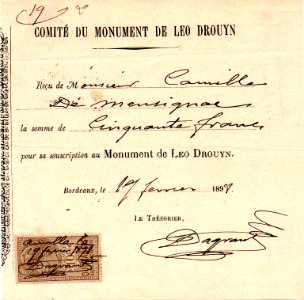 19
COMITÉ DU MONUMENT DE LEO DROUYN
Reçu de Monsieur Camille
De Mensignac
la somme de Cinquante francs
pour sa souscription au Monument de LEO DROUYN.
Bordeaux, le 17 février 1898
LE TRÉSORIER,
Dagrant
Camille
février 1898
Dagrant